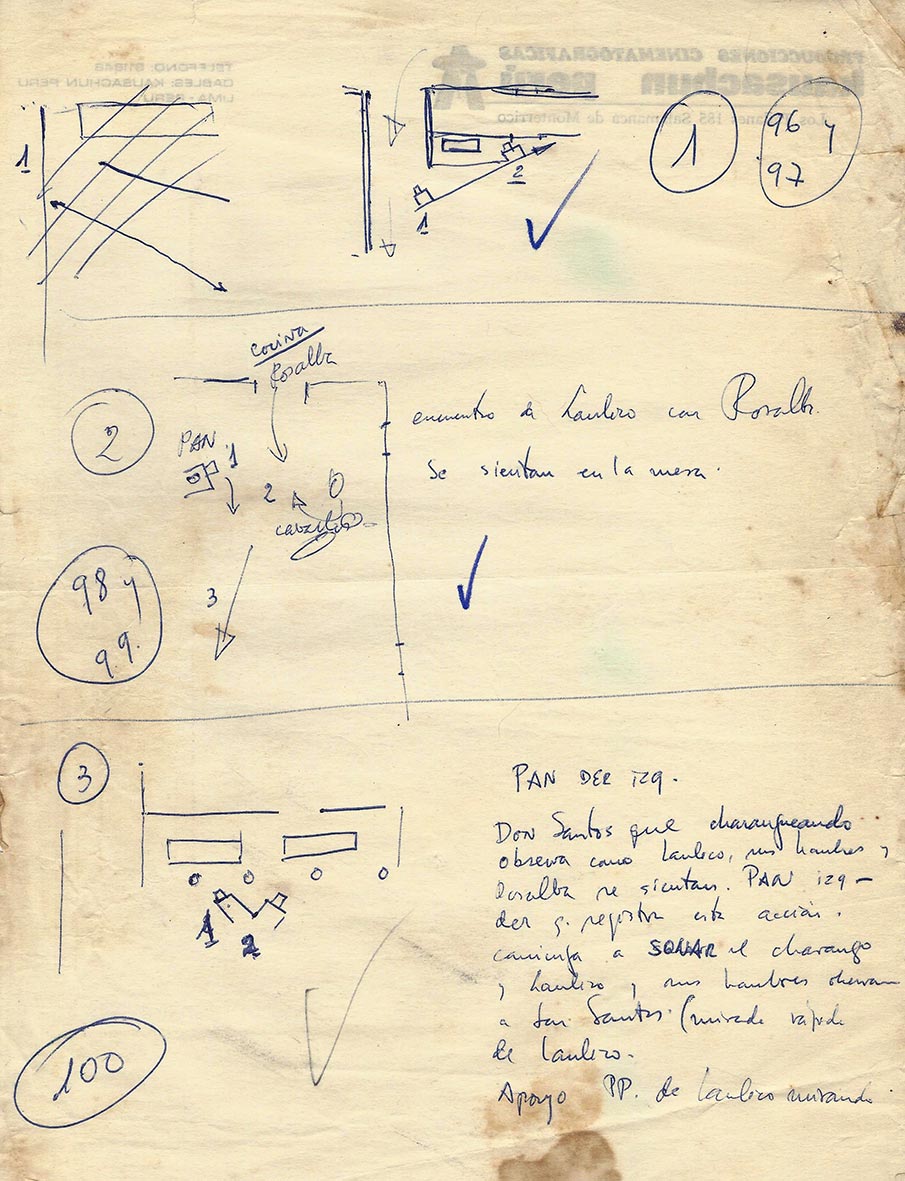 PRODUCCIONES CINEMATOGRAFICAS
kausachun perú
TELEFONO: 911848
CABLES: KAUSACHUN PERU
LIMA - PERU
185 Salamanca de Monterrico
1
1
2
1
96 y
97
cocina
Rosalba
2
PAN
1
2
3
98 y
99.
encuentro de Lautico con Rosalba.
Se sientan en la mesa.
3
1
2
100
PAN DER izq.
Don Santos que charangueando
observa como Lautico, sus hombres y
Rosalba se sientan. PAN izq -
der q. registra esta acción.
comienza a SONAR el charango
y Lautico y sus hombres observan
a Don Santos. (mirada rápida
de Lautico.
Apoyo PP. de Lautico mirando.